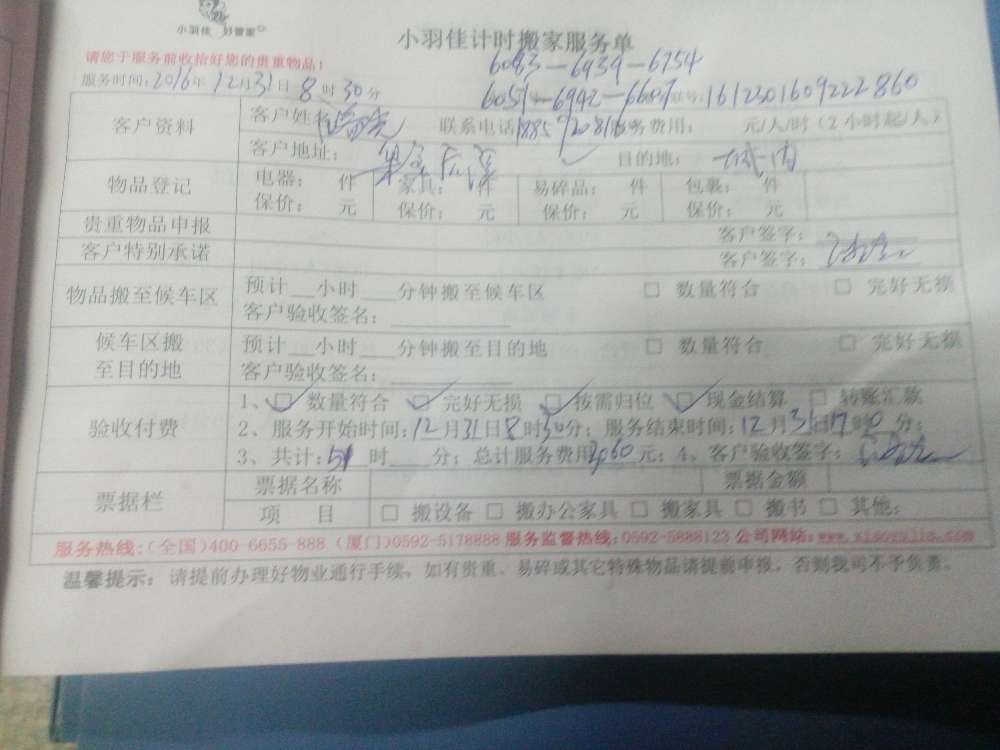 小羽佳 好管家
小羽佳计时搬家服务单
请您于服务前收拾好您的贵重物品!
6083-6939-6754
服务时间:2016年12月31日8时30分
6051-6942-6607 1612301609222860
客户资料 客户姓名: 联系电话 服务费用: 元/人/时(2小时起/人)
客户地址: 目的地:
物品登记 电器: 件 家具: 件 易碎品: 件 包裹: 件
保价: 元 保价: 元 保价: 元 保价: 元
贵重物品申报 客户签字:
客户特别承诺 客户签字:
物品搬至候车区 预计__小时___分钟搬至候车区 □ 数量符合 □ 完好无损
客户验收签名:
候车区搬至目的地 预计__小时___分钟搬至目的地 □ 数量符合 □ 完好无损
客户验收签名:
验收付费 1、☑ 数量符合 ☑ 完好无损 ☑ 按需归位 ☑ 现金结算 □ 转账汇款
2、服务开始时间:12月31日8时30分; 服务结束时间:12月31日17时0分;
3、共计:51时 分; 总计服务费用2060元; 4、客户验收签字:
票据栏 票据名称 票据金额
项 目 □ 搬设备 □ 搬办公家具 □ 搬家具 □ 搬书 □ 其他:
服务热线:(全国)400-6655-888 (厦门)0592-5178888 服务监督热线:0592-5888123 公司网站:www.xiaoyujia.com
温馨提示: 请提前办理好物业通行手续,如有贵重、易碎或其它特殊物品请提前申报,否则我司不予负责。